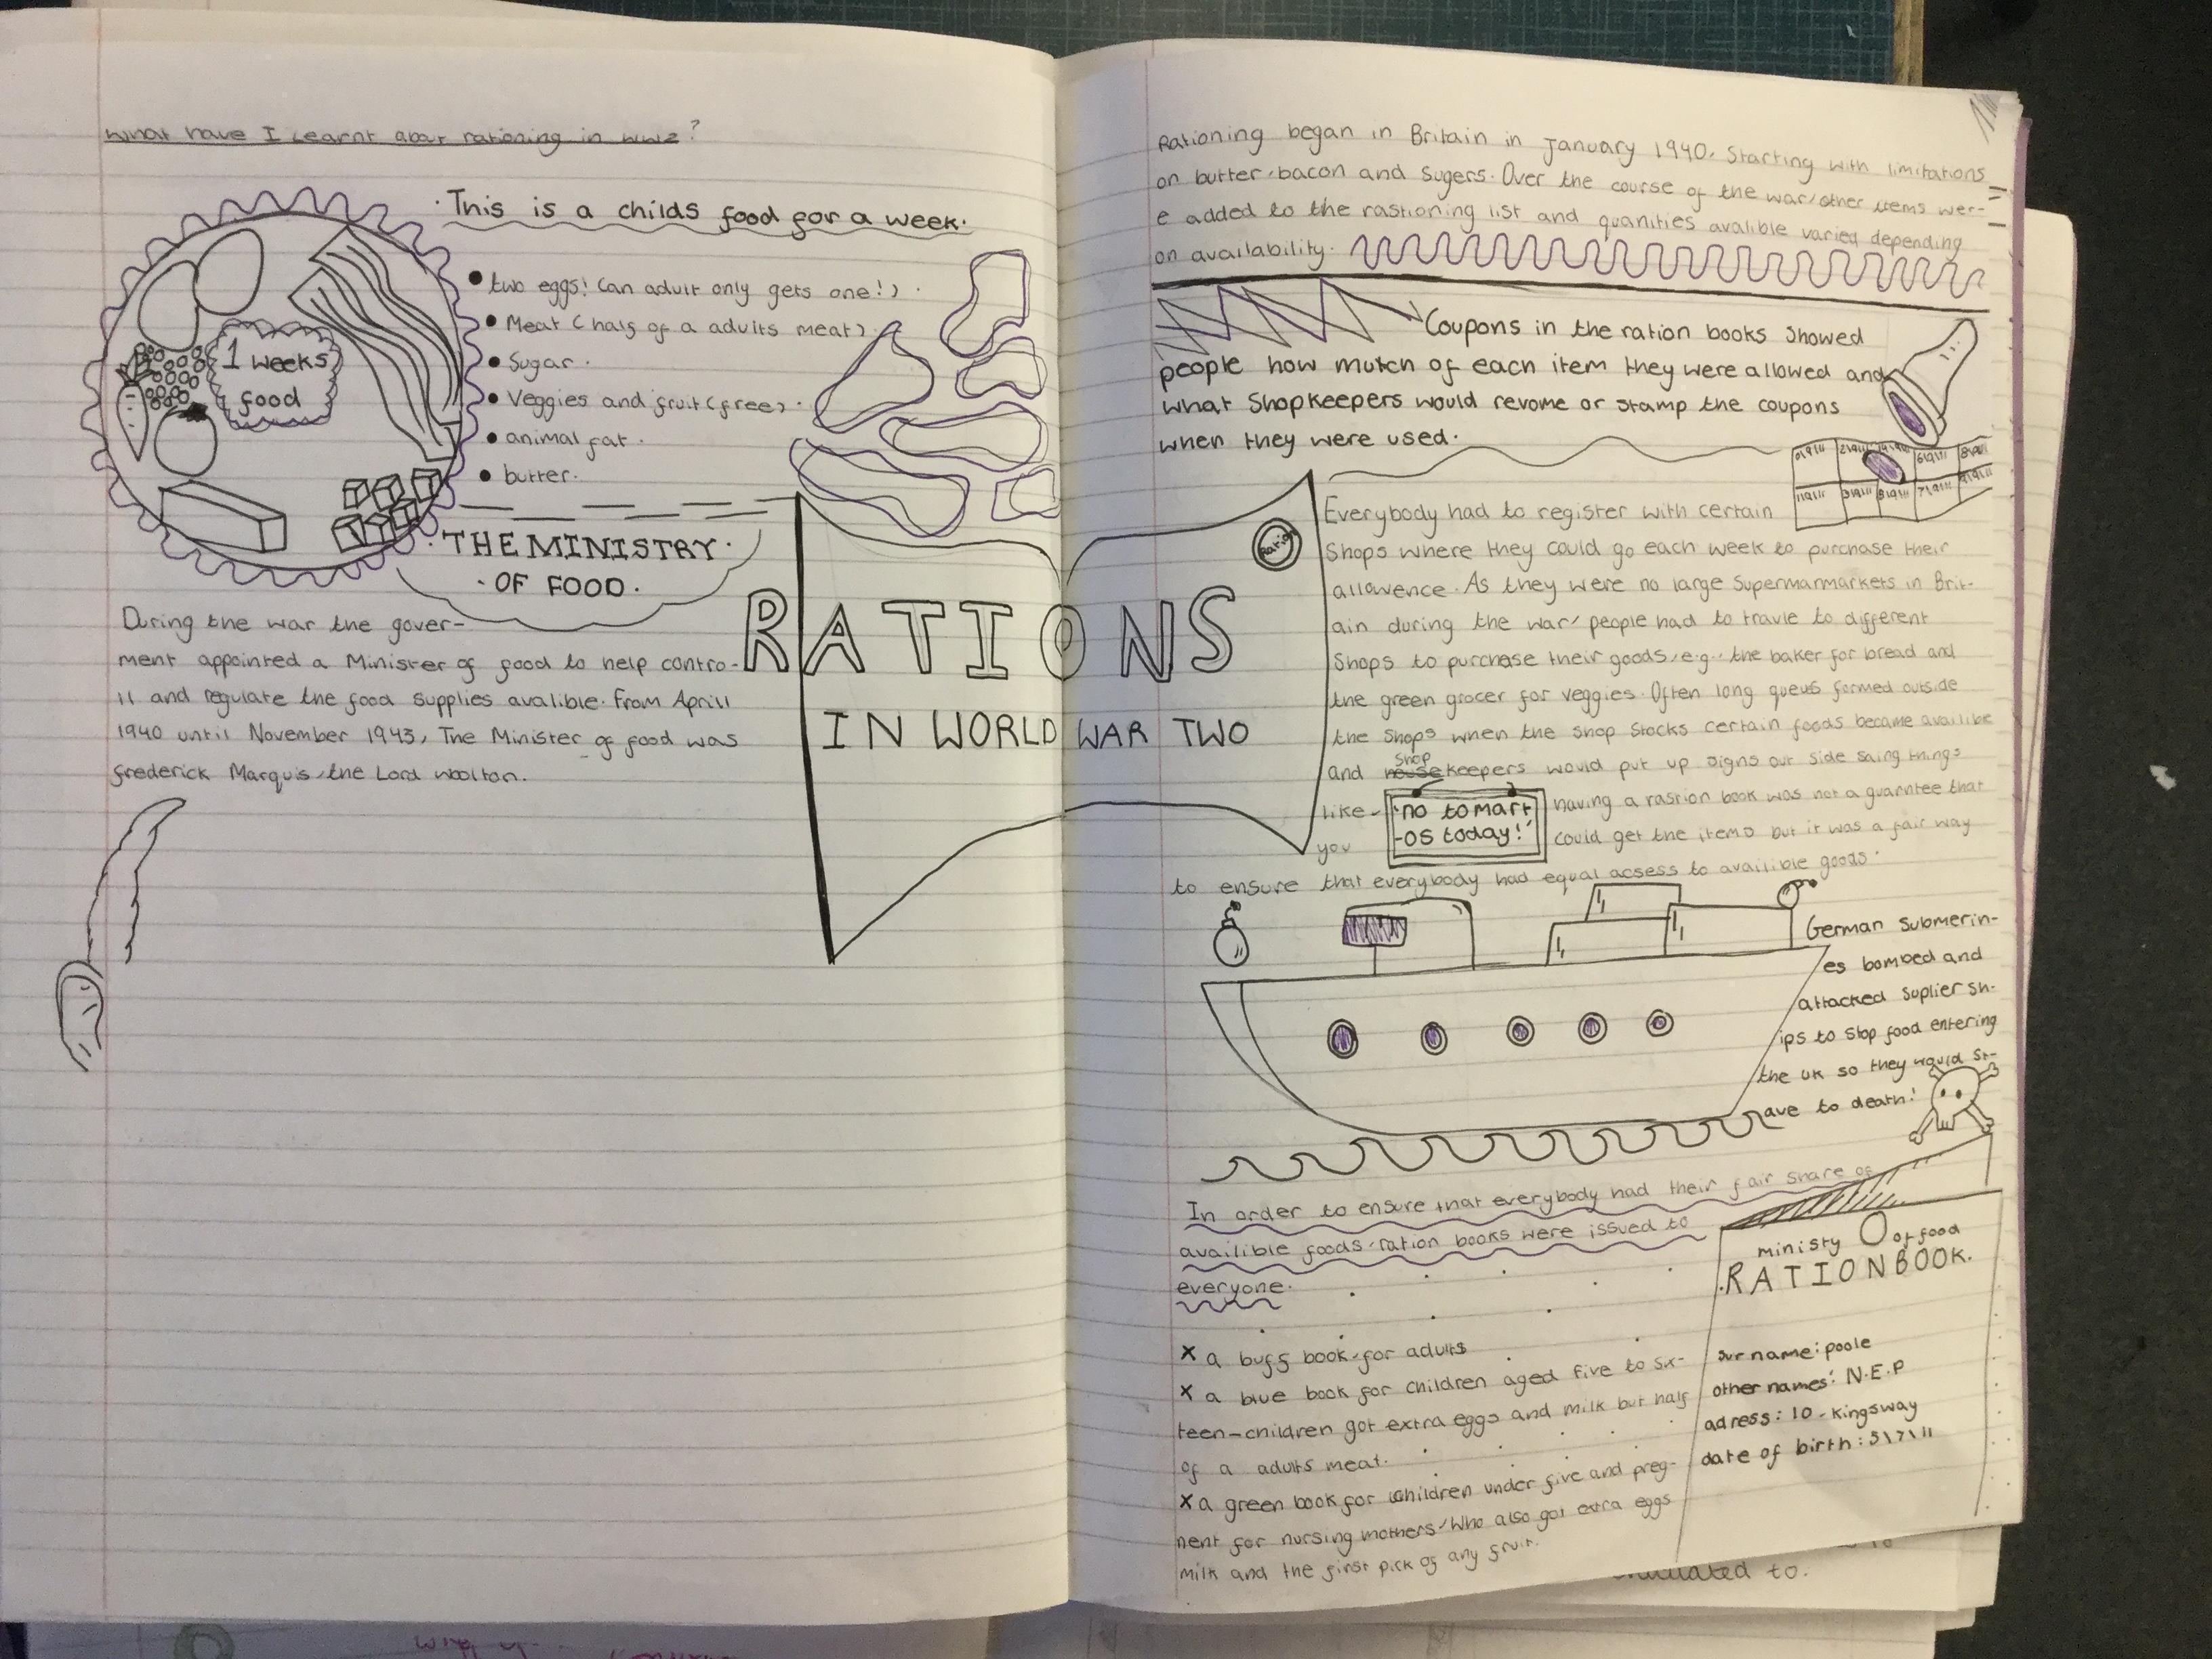 What have I learnt about rationing in WW2?
· This is a childs food for a week.
• two eggs! (an adult only gets one!)
• Meat (half of a adults meat)
• Sugar.
• Veggies and fruit (free).
• animal fat.
• butter.
1 weeks
food
· THE MINISTRY ·
· OF FOOD ·
During the war the gover-
ment appointed a Minister of food to help contro-
ll and regulate the food supplies avalible. From Aprill
1940 until November 1943, The Minister of food was
frederick Marquis, the Lord woolton.
RATIONS
IN WORLD WAR TWO
Ration
Rationing began in Britain in January 1940. Starting with limitations
on butter, bacon and Sugers. Over the course of the war, other items wer-
e added to the rastioning list and quanities avalible varied depending
on availability.
Coupons in the ration books showed
people how mutch of each item they were allowed and
what Shopkeepers would revome or stamp the coupons
when they were used.
Everybody had to register with certain
Shops where they could go each week to purchase their
allowence. As they were no large Supermarmarkets in Brit-
ain during the war, people had to travle to different
Shops to purchase their goods, e.g. the baker for bread and
the green grocer for veggies. Often long queus formed outside
the shops when the shop stocks certain foods became availible
and shop keepers would put up signs out side saing things
like - 'no tomart having a rastion book was not a guarntee that
you -os today!' could get the items but it was a fair way
to ensure that everybody had equal acsess to availible goods.
German Submerin-
es bombed and
attacked Suplier sh-
ips to stop food entering
the UK so they would st-
ave to death!
In order to ensure that everybody had their fair share of
availible foods, ration books were issued to
everyone.
x a buff book - for adults
x a blue book for children aged five to six-
teen - children got extra eggs and milk but half
of a adults meat.
x a green book for children under five and preg-
nent for nursing mothers, Who also got extra eggs
milk and the first pick of any fruit.
ministy of food
· RATION BOOK.
Sur name: poole
other names: N.E.P
adress: 10 - kingsway
date of birth: 5\7\11
to.